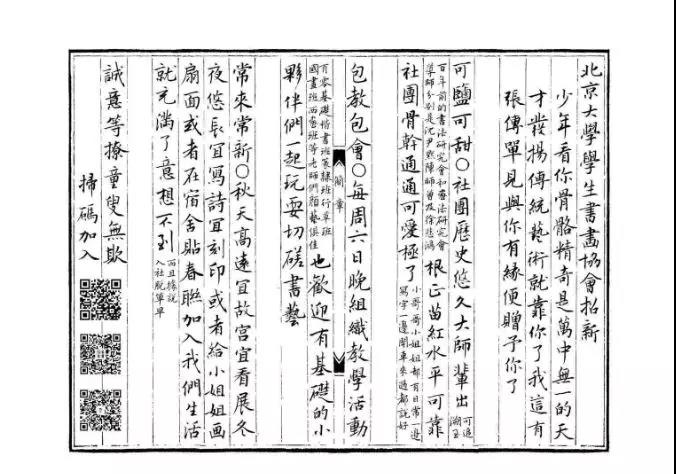 北京大學學生書畫協會招新
少年看你骨骼精奇是萬中無一的天
才發揚傳統藝術就靠你了我這有
張傳單見與你有緣便贈予你了
可鹽可甜〇社團歷史悠久大師輩出
可追
溯至
百年前的書法研究會和畫法研究會
導師分别是沈尹默陳師曾及徐悲鴻
根正苗紅水平可靠
社團骨幹通通可愛極了
小哥哥小姐姐都有日常一邊
寫字一邊開車來過都說好
包教包會〇每周六日晚組織教學活動
簡章
有零基礎楷書班篆隸班行草班
國畫班西畫班等老師們顏藝俱佳
也歡迎有基礎的小
夥伴們一起玩耍切磋書藝
常來常新〇秋天高遠宜故宮宜看展冬
夜悠長宜寫詩宜刻印或者給小姐姐画
扇面或者在宿舍貼春聯加入我們生活
就充滿了意想不到
而且據說
入社脫單早
誠意等撩童叟無欺
掃碼加入